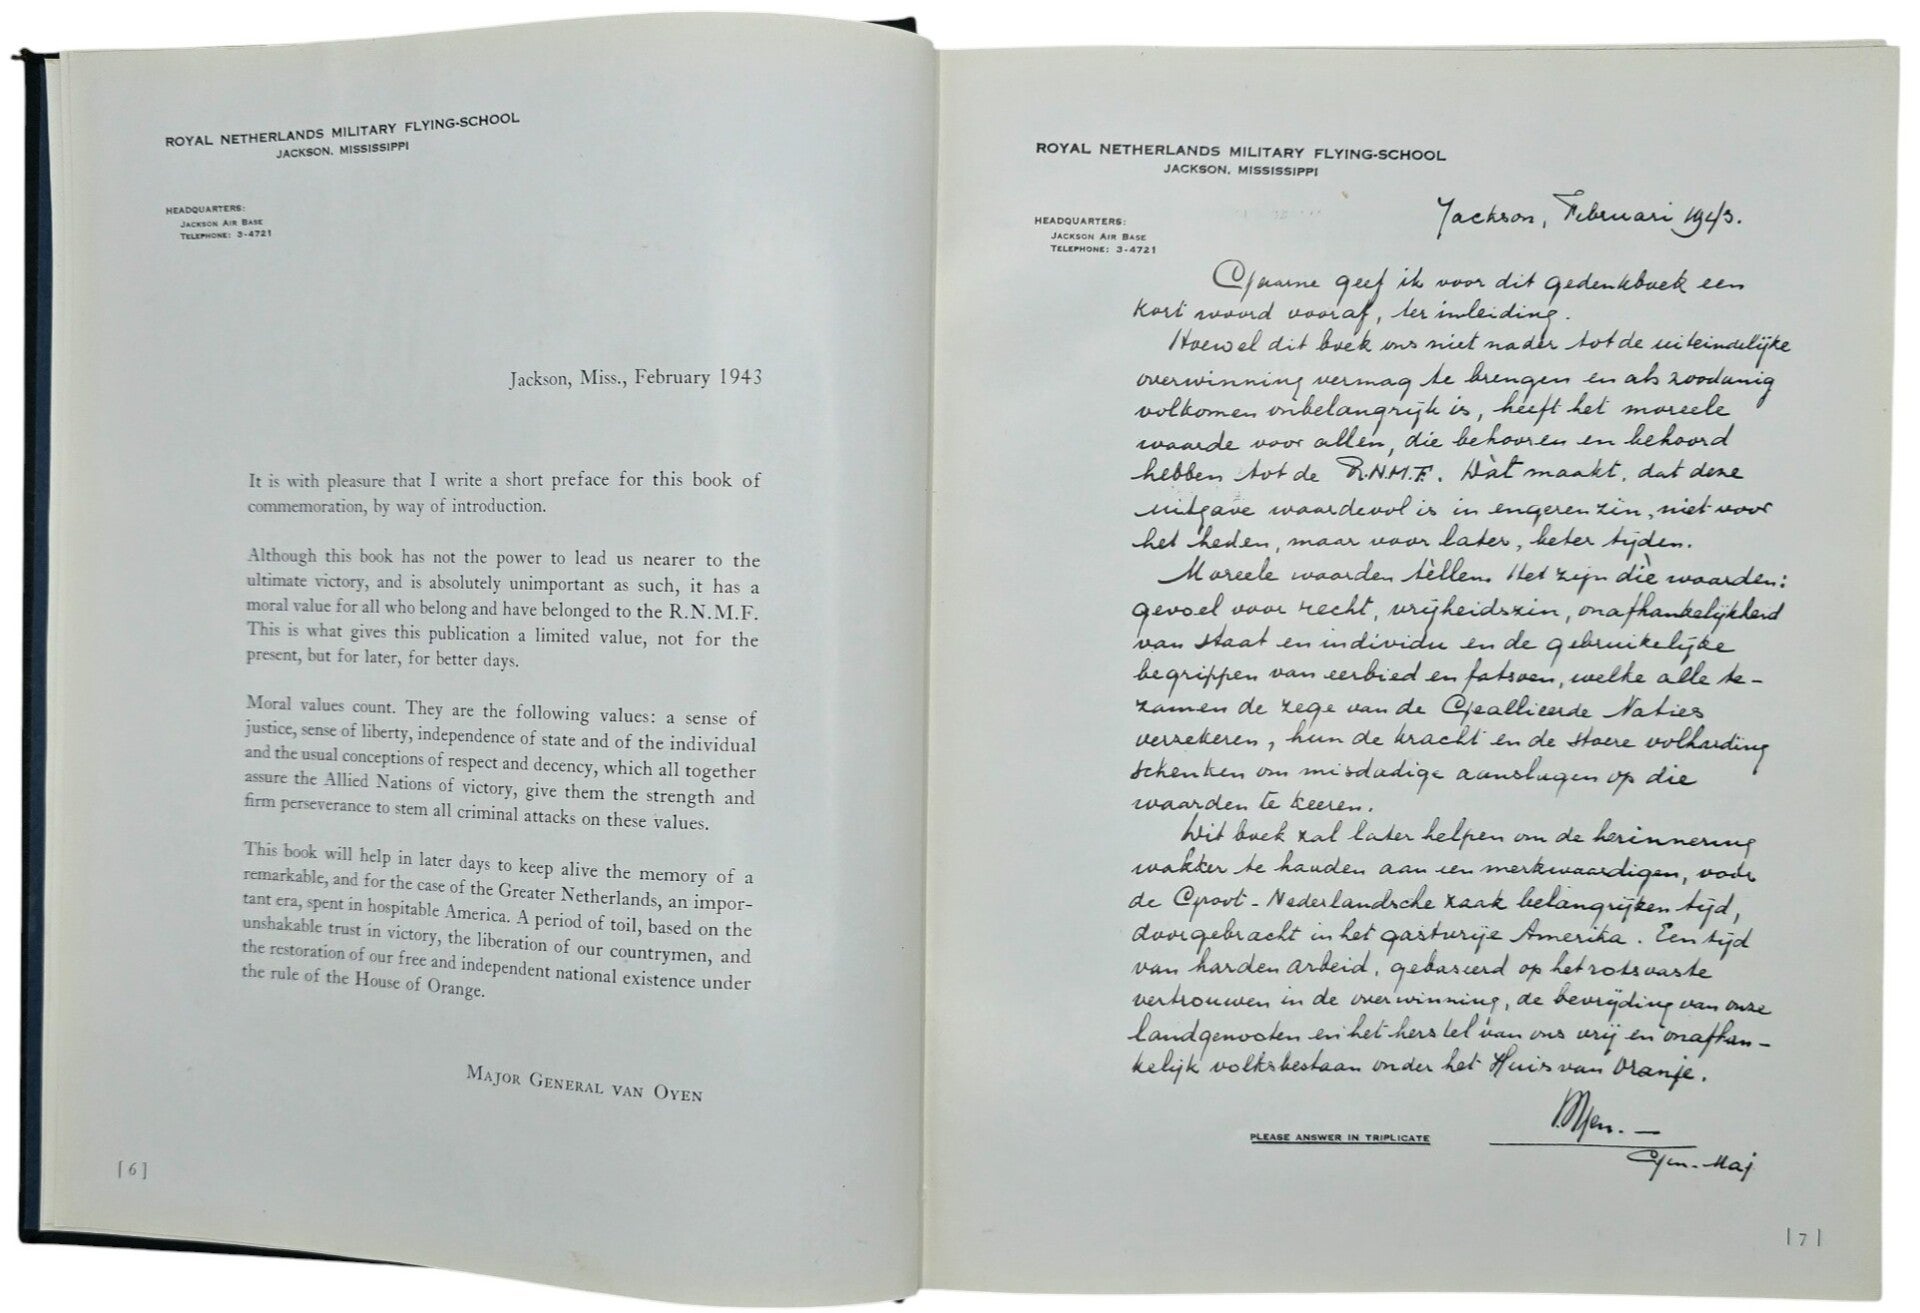 ROYAL NETHERLANDS MILITARY FLYING-SCHOOL
JACKSON, MISSISSIPPI
HEADQUARTERS:
JACKSON AIR BASE
TELEPHONE: 3-4721
Jackson, Miss., February 1943
It is with pleasure that I write a short preface for this book of
commemoration, by way of introduction.
Although this book has not the power to lead us nearer to the
ultimate victory, and is absolutely unimportant as such, it has a
moral value for all who belong and have belonged to the R.N.M.F.
This is what gives this publication a limited value, not for the
present, but for later, for better days.
Moral values count. They are the following values: a sense of
justice, sense of liberty, independence of state and of the individual
and the usual conceptions of respect and decency, which all together
assure the Allied Nations of victory, give them the strength and
firm perseverance to stem all criminal attacks on these values.
This book will help in later days to keep alive the memory of a
remarkable, and for the case of the Greater Netherlands, an impor-
tant era, spent in hospitable America. A period of toil, based on the
unshakable trust in victory, the liberation of our countrymen, and
the restoration of our free and independent national existence under
the rule of the House of Orange.
MAJOR GENERAL VAN OYEN
[ 6 ]
ROYAL NETHERLANDS MILITARY FLYING-SCHOOL
JACKSON, MISSISSIPPI
HEADQUARTERS:
JACKSON AIR BASE
TELEPHONE: 3-4721
Jackson, Februari 1943.
Gaarne geef ik voor dit gedenkboek een
kort woord vooraf, ter inleiding.
Hoewel dit boek ons niet nader tot de uiteindelijke
overwinning vermag te brengen en als zoodanig
volkomen onbelangrijk is, heeft het moreele
waarde voor allen, die behooren en behoord
hebben tot de R.N.M.F. Dàt maakt, dat deze
uitgave waardevol is in engeren zin, niet voor
het heden, maar voor later, beter tijden.
Moreele waarden tèllen. Het zijn dìe waarden:
gevoel voor recht, vrijheidszin, onafhankelijkheid
van staat en individu en de gebruikelijke
begrippen van eerbied en fatsoen, welke alle te-
zamen de zege van de Geallieerde Naties
verzekeren, hun de kracht en de stoere volharding
schenken om misdadige aanslagen op die
waarden te keeren.
Dit boek zal later helpen om de herinnering
wakker te houden aan een merkwaardigen, voor
de Groot-Nederlandsche zaak belangrijken tijd,
doorgebracht in het gastvrije Amerika. Een tijd
van harden arbeid, gebaseerd op het rotsvaste
vertrouwen in de overwinning, de bevrijding van onze
landgenooten en het herstel van ons vrij en onafhan-
kelijk volksbestaan onder het Huis van Oranje.
PLEASE ANSWER IN TRIPLICATE
Gen.-Maj
[ 7 ]